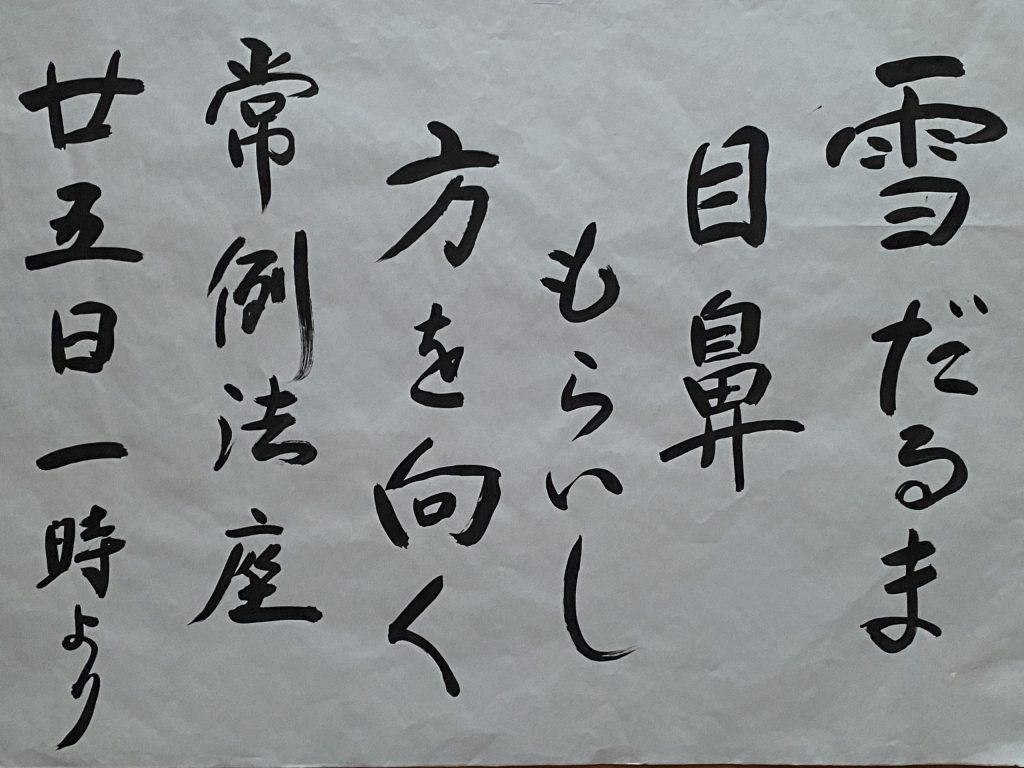 雪だるま
目鼻
もらいし
方を向く
常例法座
廿五日一時より